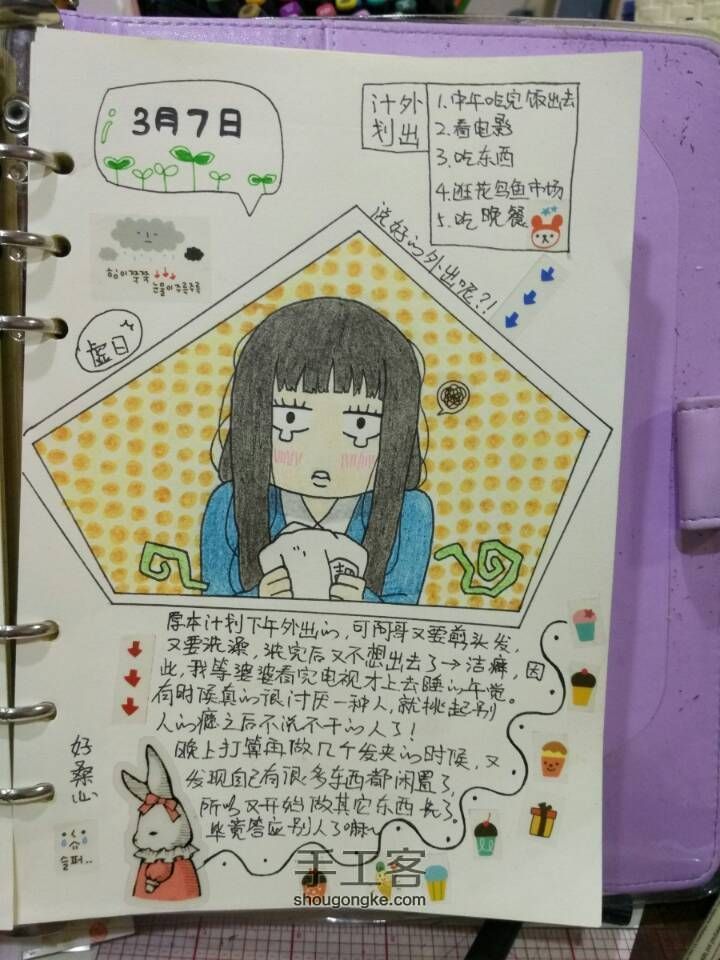 3月7日
外出
计划
1.中午吃完饭出去
2.看电影
3.吃东西
4.逛花鸟鱼市场
5.吃晚餐
说好的外出呢?!
힘이쭉쭉
눈물이주룩주룩
虚日
原本计划下午外出的,可阿哥又要剪头发,
又要洗澡,洗完后又不想出去了→洁癖,因
此,我等婆婆看完电视才上去睡的午觉。
有时候真的很讨厌一种人,就挑起别
人的瘾之后不说不干的人了!
晚上打算再做几个发夹的时候,又
发现自己有很多东西都闲置了,
所以又开始做其它东西先了。
毕竟答应别人了嘛~
好桑心
슬퍼..
手工客
shougongke.com